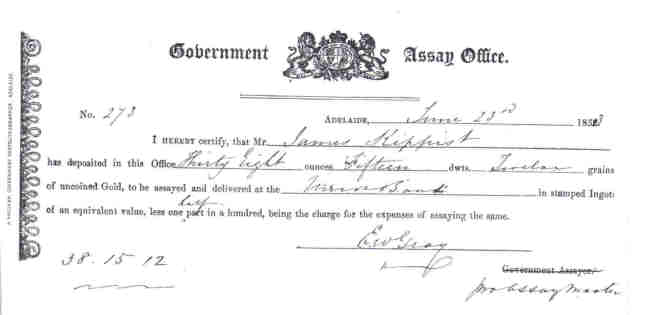 Government Assay Office.
No. 273 ADELAIDE, June 23rd 1853
I HEREBY certify, that Mr. James Kippist
has deposited in this Office Thirty Eight ounces Fifteen dwts. Twelve grains
of uncoined Gold, to be assayed and delivered at the Bank in stamped Ingots
of an equivalent value, less one part in a hundred, being the charge for the expenses of assaying the same.
E W Gray
38. 15 12 Government Assayer.
pro Assay Master